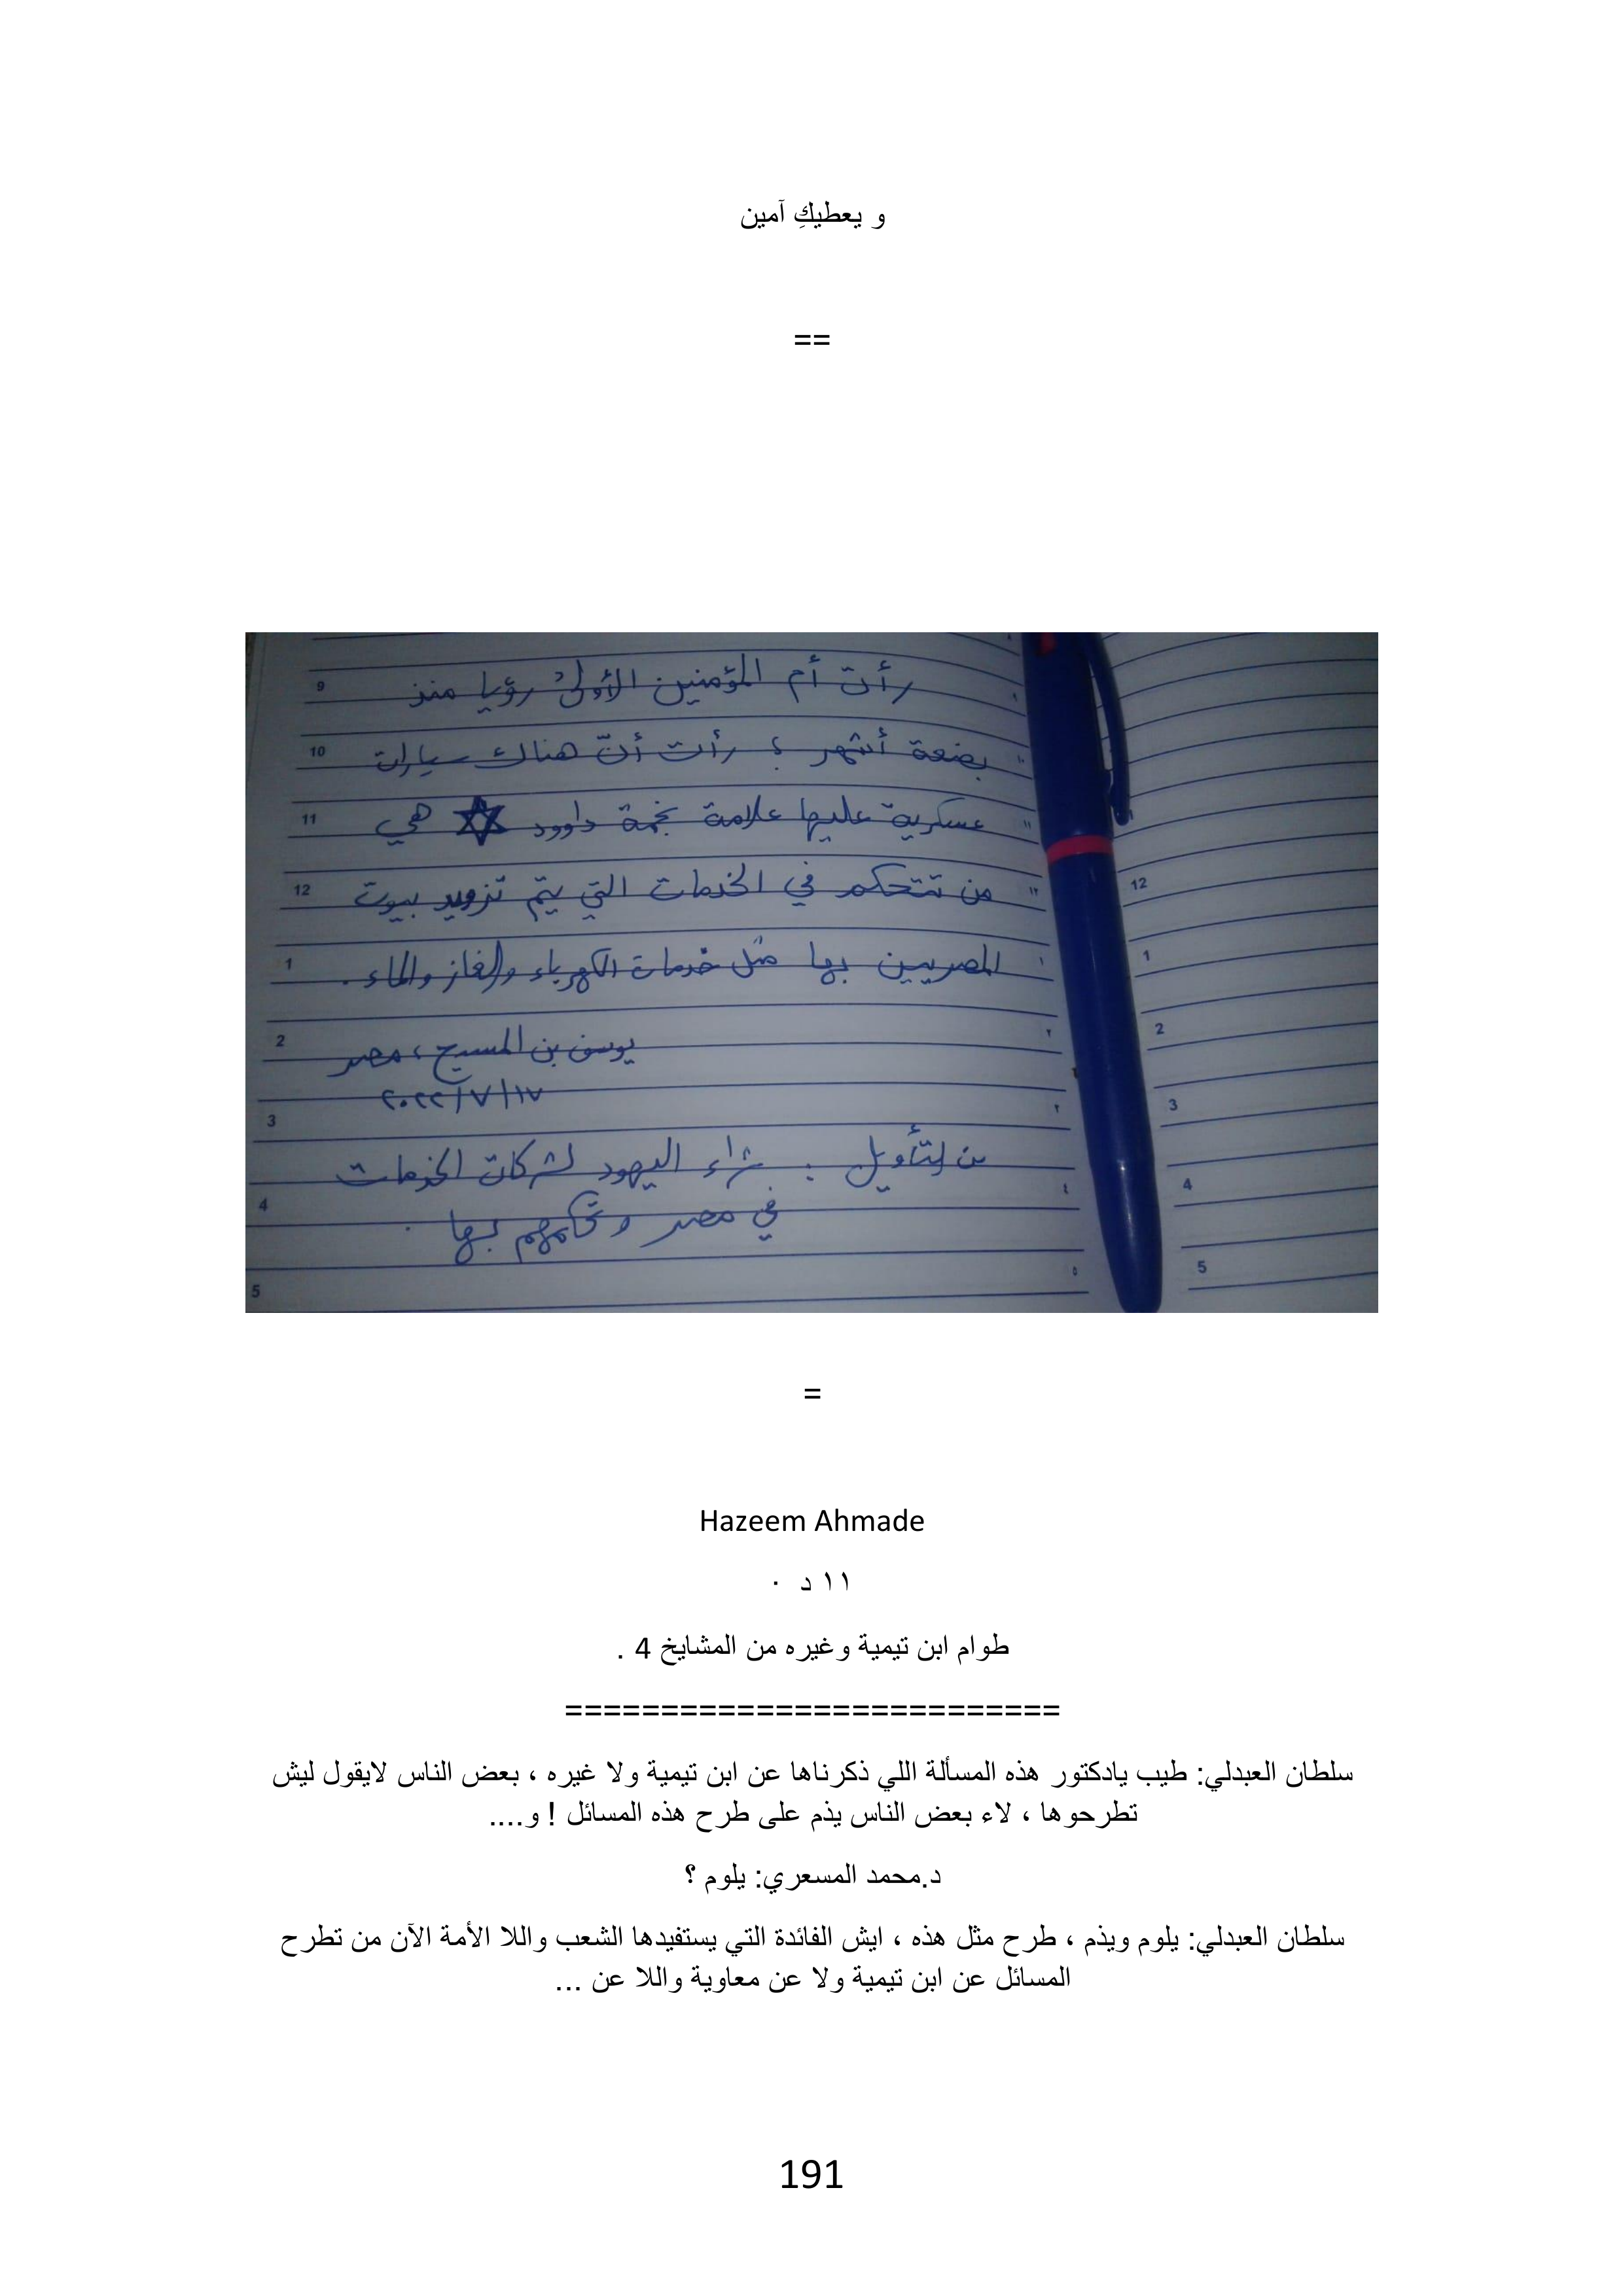 و يعطيكِ آمين
==
رأت أم المؤمنين الأولى رؤيا منذ
بضعة أشهر ؛ رأت أنّ هناك سيارات
عسكرية عليها علامة نجمة داوود ✡ هي
من تتحكم في الخدمات التي يتمّ تزويد بيوت
المصريين بها مثل خدمات الكهرباء والغاز والماء .
يوسف بن المسيح ، مصر
١٧/٧/٢٠٢٢
من التأويل : شراء اليهود لشركات الخدمات
في مصر وتحكمهم بها .
=
Hazeem Ahmade
١١ د ·
طوام ابن تيمية وغيره من المشايخ 4 .
==========================
سلطان العبدلي: طيب يادكتور هذه المسألة اللي ذكرناها عن ابن تيمية ولا غيره ، بعض الناس لايقول ليش
تطرحوها ، لاء بعض الناس يذم على طرح هذه المسائل ! و....
د.محمد المسعري: يلوم ؟
سلطان العبدلي: يلوم ويذم ، طرح مثل هذه ، ايش الفائدة التي يستفيدها الشعب واللا الأمة الآن من تطرح
المسائل عن ابن تيمية ولا عن معاوية واللا عن ...
191